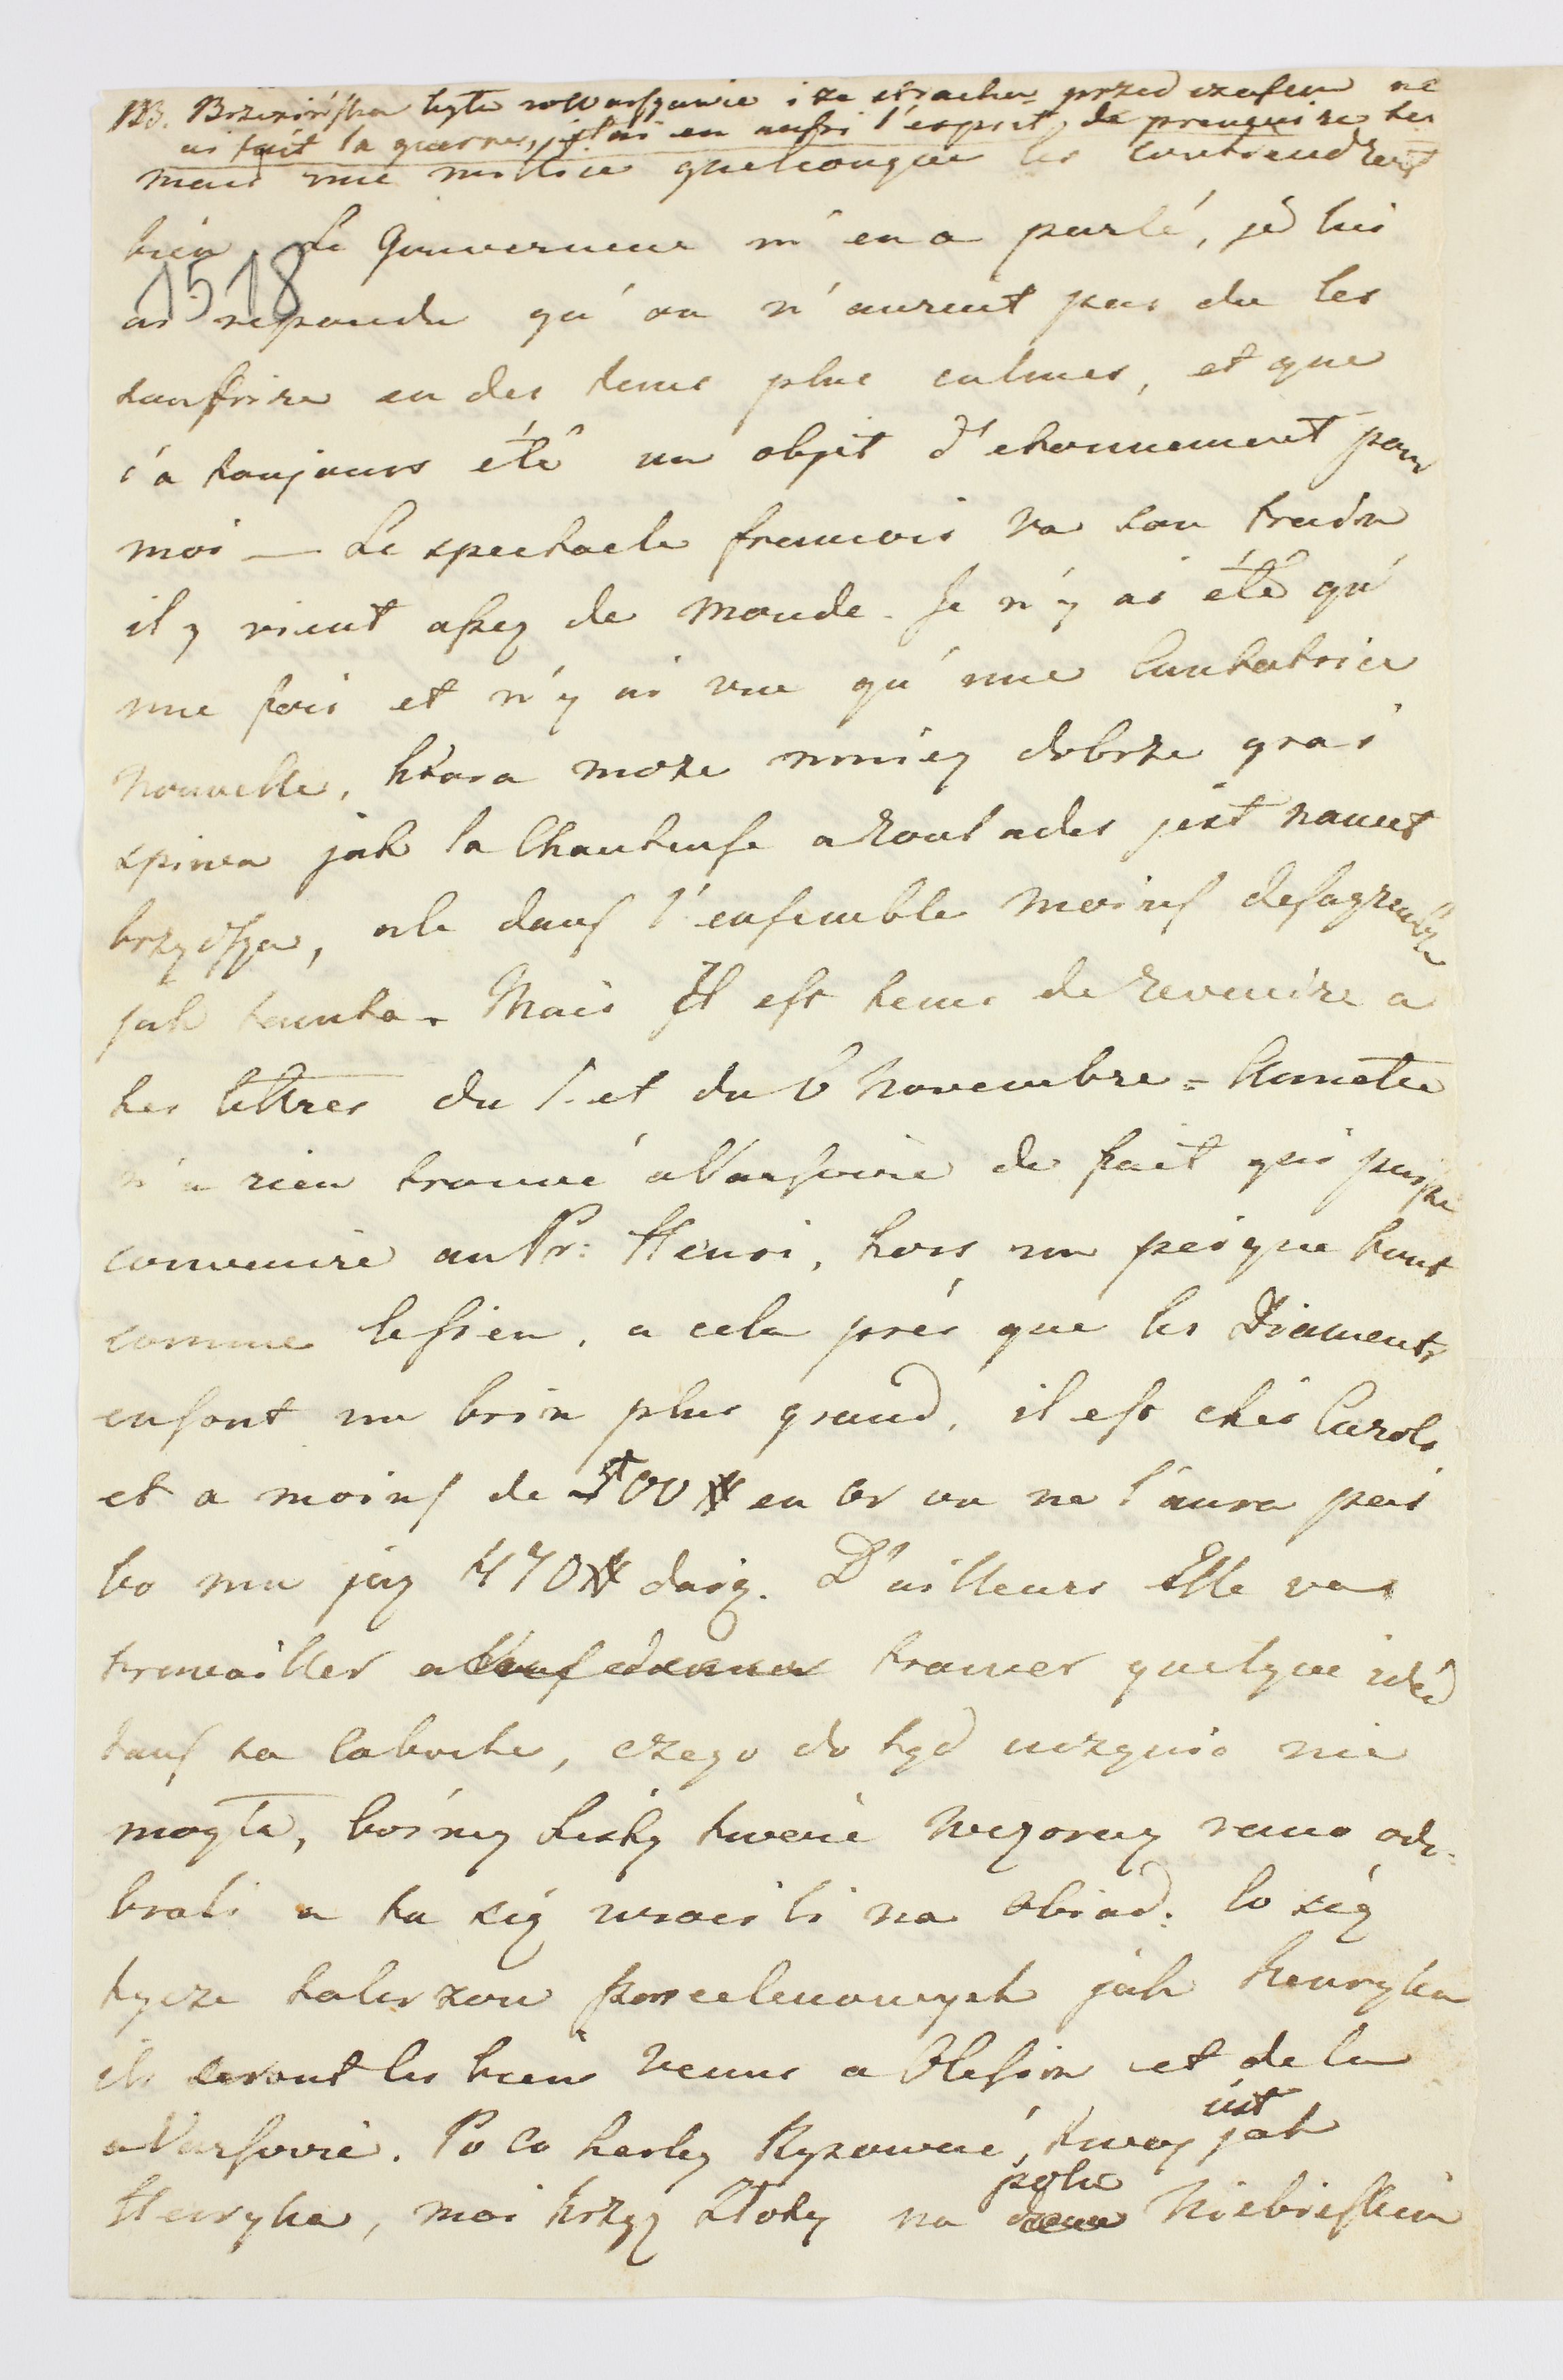 NB. Brzezińska była w Warszawie i ze strachu przed czasem ne
ai fait la guerre, j'ai en aussi l'esprit de
mais une milice quelconque les contiendrent
bien Le Gouverneur m'en a parlé, je lui
1518
ai repondu qu'on n'aurent pas du les
souffrire en des tems plus calmes, et que
s'a toujours été un objet d'etonnement pour
moi — Le spectacle francois va son train
il y vient assez de monde. Je n'y ai été qu'
une fois et n'y ai vue qu'une Cantatrice
nouvelle, ktora moze mniey dobrze gra i
spiwa jak la Chanteuse a roulades jest nawet
brzydsza, ale dans l'ensemble moins desagreable
jak tamta. Mais Il est tems de revenire a
tes lettres du 1. et du 6 Novembre =
n'a rien trouvé a Varsovie de fait qui puisse
convenire au Pr: Henri, hors un peigne tout
comme le sien, a cela prés que les Diaments
en sont un brin plus grand, il est chés Carols
et a moins de 500 # en or on ne l'aura pas
bo mu juz 470 # daią. D'ailleurs Elle va
travailler a trouver quelque idée
dans sa caboche, czego do tąd uczynić nie
mogła, bośmy Listy twoie wczoray rano ode:
brali a tu się wrocili na obiad. Co się
tycze talerzow porcelenowych jak Henryka
ils seront les bien venus a Olesin et de la
a Varsovie. Po co herby Rysować, twoy iest jak
Henryka, moi krzyz złoty na polu Niebieskim